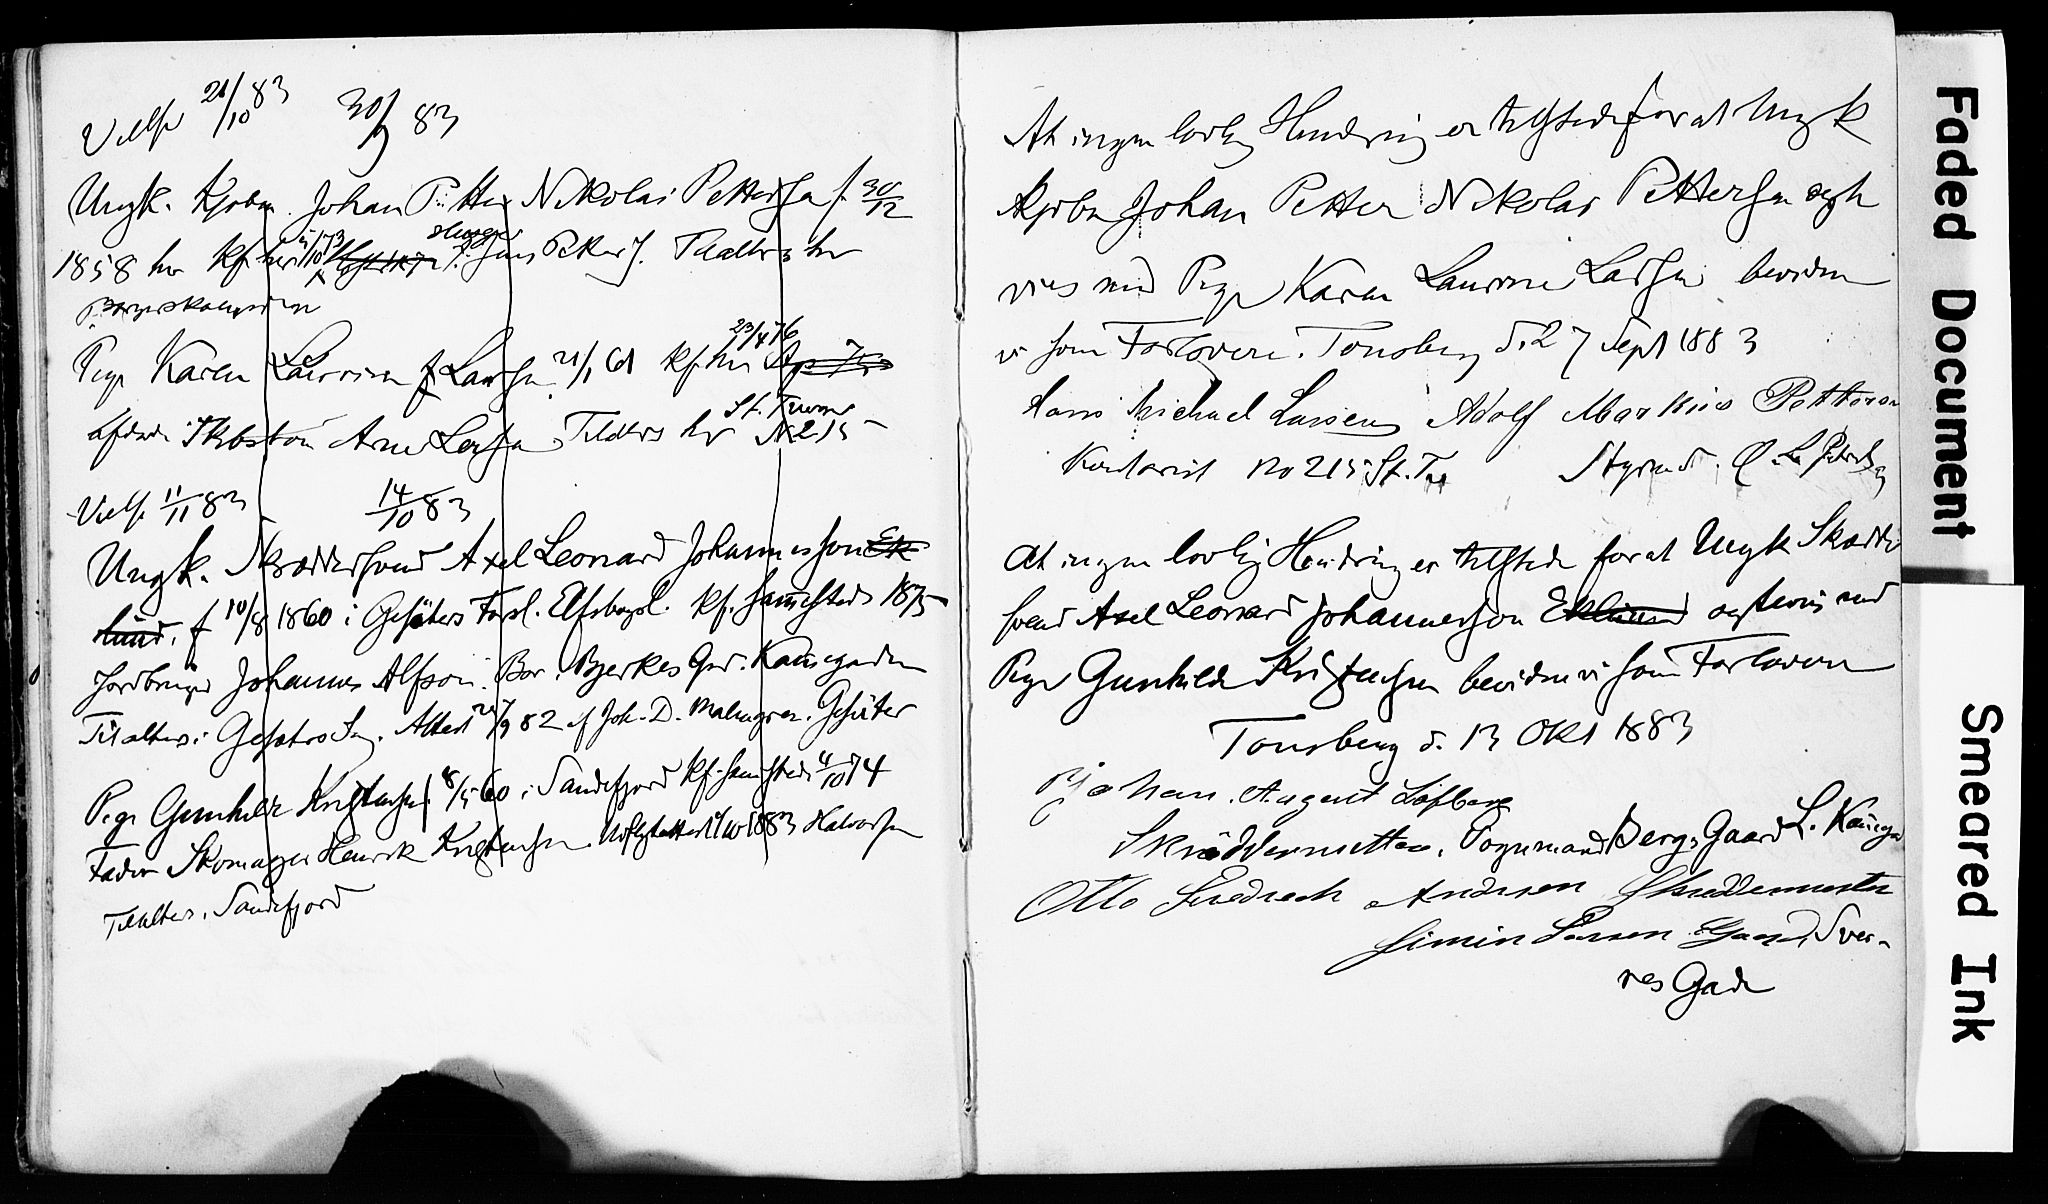 Vielse 21/10 83 30/9 83
Ungk. Kjøbm. Johan Petter Nikolai Pettersen f. 30/12
1858 her kf. her 5/10 73 F. Jens Petters. Tilalters her
Borgerskolen
Pige Karen Laurine Larsen 21/1 61 kf her 23/4 76
afdøde Skibstøm Arne Larsen Tilalters her St. Tr No 215
Vielse 11/11 83 14/10 83
Ungk. Skræddersvend Axel Leonard Johannesson Ek-
lund. f 10/8 1860 i Gesäters Forsl. Elfsborgsl. kf. sammesteds 1875
Jordbruger Johannes Alfson. Bor i Bjerkes Grd. Kanegaden
Tilalters i Gesæters Attest 24/9 82 af Joh. D. Malmgren. Gesäter
Pige Gunhilde Kristensen f. 8/5 60 i Sandefjord kf. sammesteds 4/10 74
Fader Skomager Henrik Kristensen 1883 Halvorsen
Tilalters. Sandefjord
At ingen lovlig Hindring er tilstede for at Ungk
Kjøbm Johan Petter Nikolai Pettersen og
vies med Pige Karen Laurine Larsen bevidne
vi som Forlovere. Tønsberg d. 27 Sept 1883
Hans Michael Larsen Adolf Markus Petterson
Kontorist No 215 St. Tr Styrmd.
At ingen lovlig Hindring er tilstede for at Ungk Skrædder
svend Axel Leonard Johannesson Eklund ægtevies med
Pige Gunhilde Kristensen bevidne vi som Forlovere
Tønsberg d. 13 Okt 1883
Johan August Löfberg
Skräddermester. Bergs Gaard L. Kanegd
Otto Fredrech Andersen Skreddermester
Simen Larsen Gaard, Sver-
res Gade
Faded Document
Smeared Ink